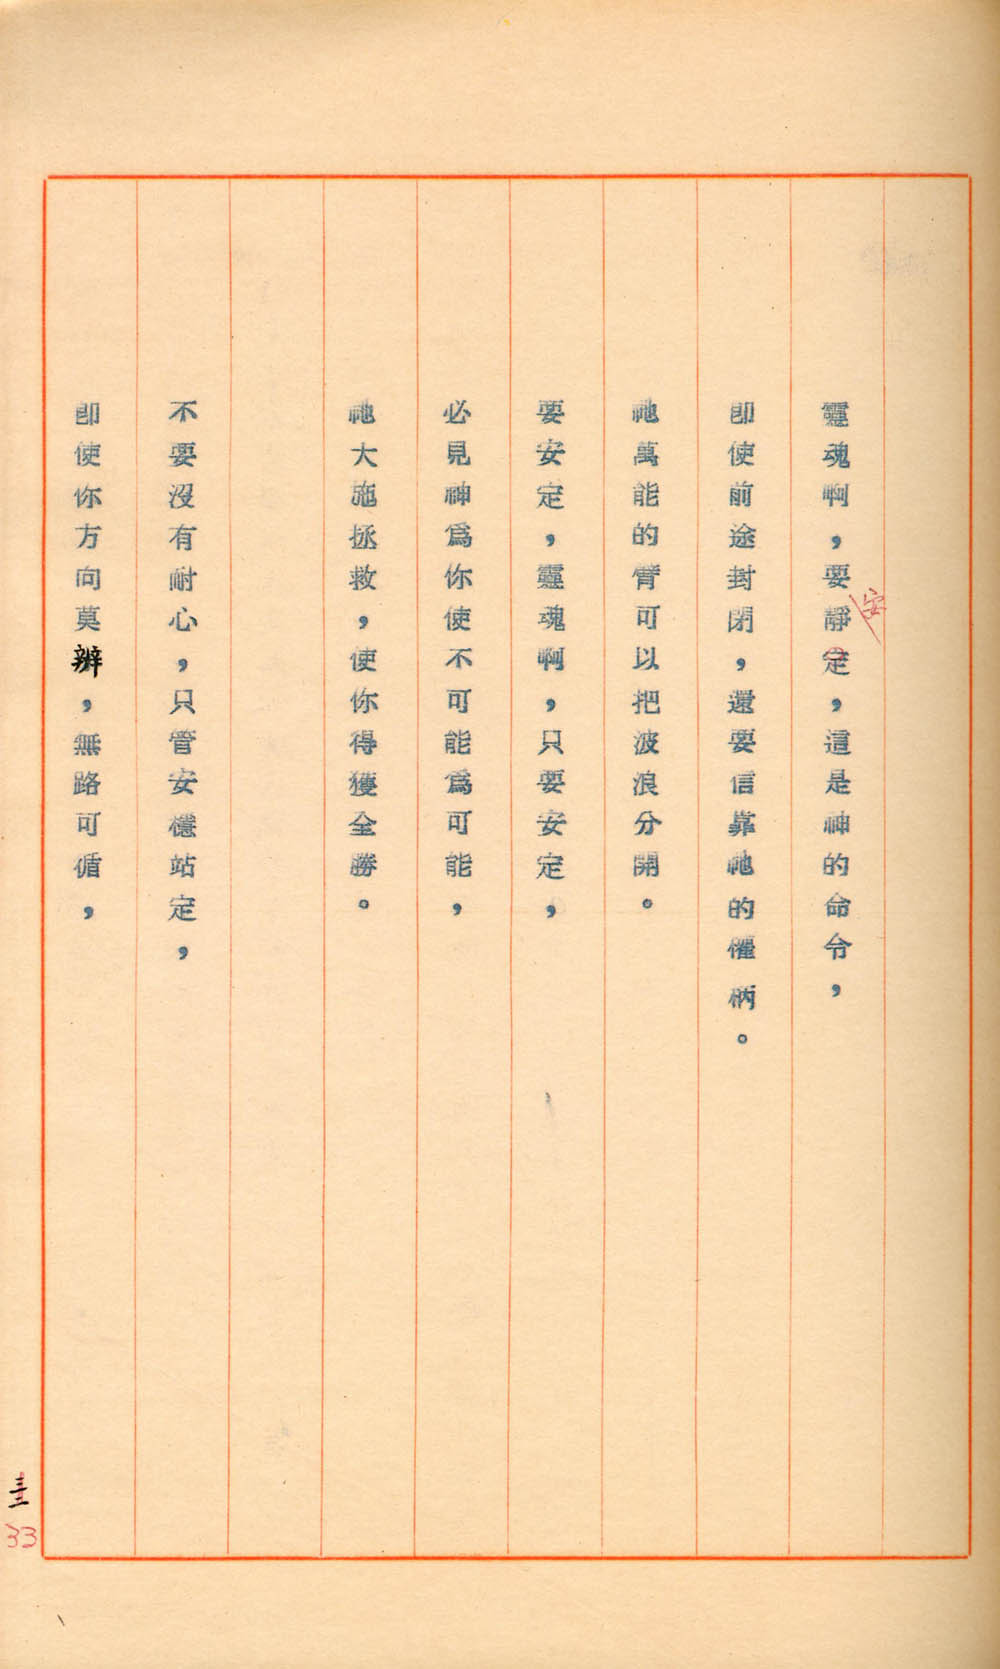 靈魂啊，要靜定，這是神的命令，
安
即使前途封閉，還要信靠祂的權柄。
祂萬能的臂可以把波浪分開。
要安定，靈魂啊，只要安定，
必見神爲你使不可能爲可能，
祂大施拯救，使你得獲全勝。
不要沒有耐心，只管安穩站定，
即使你方向莫辦，無路可循，
33